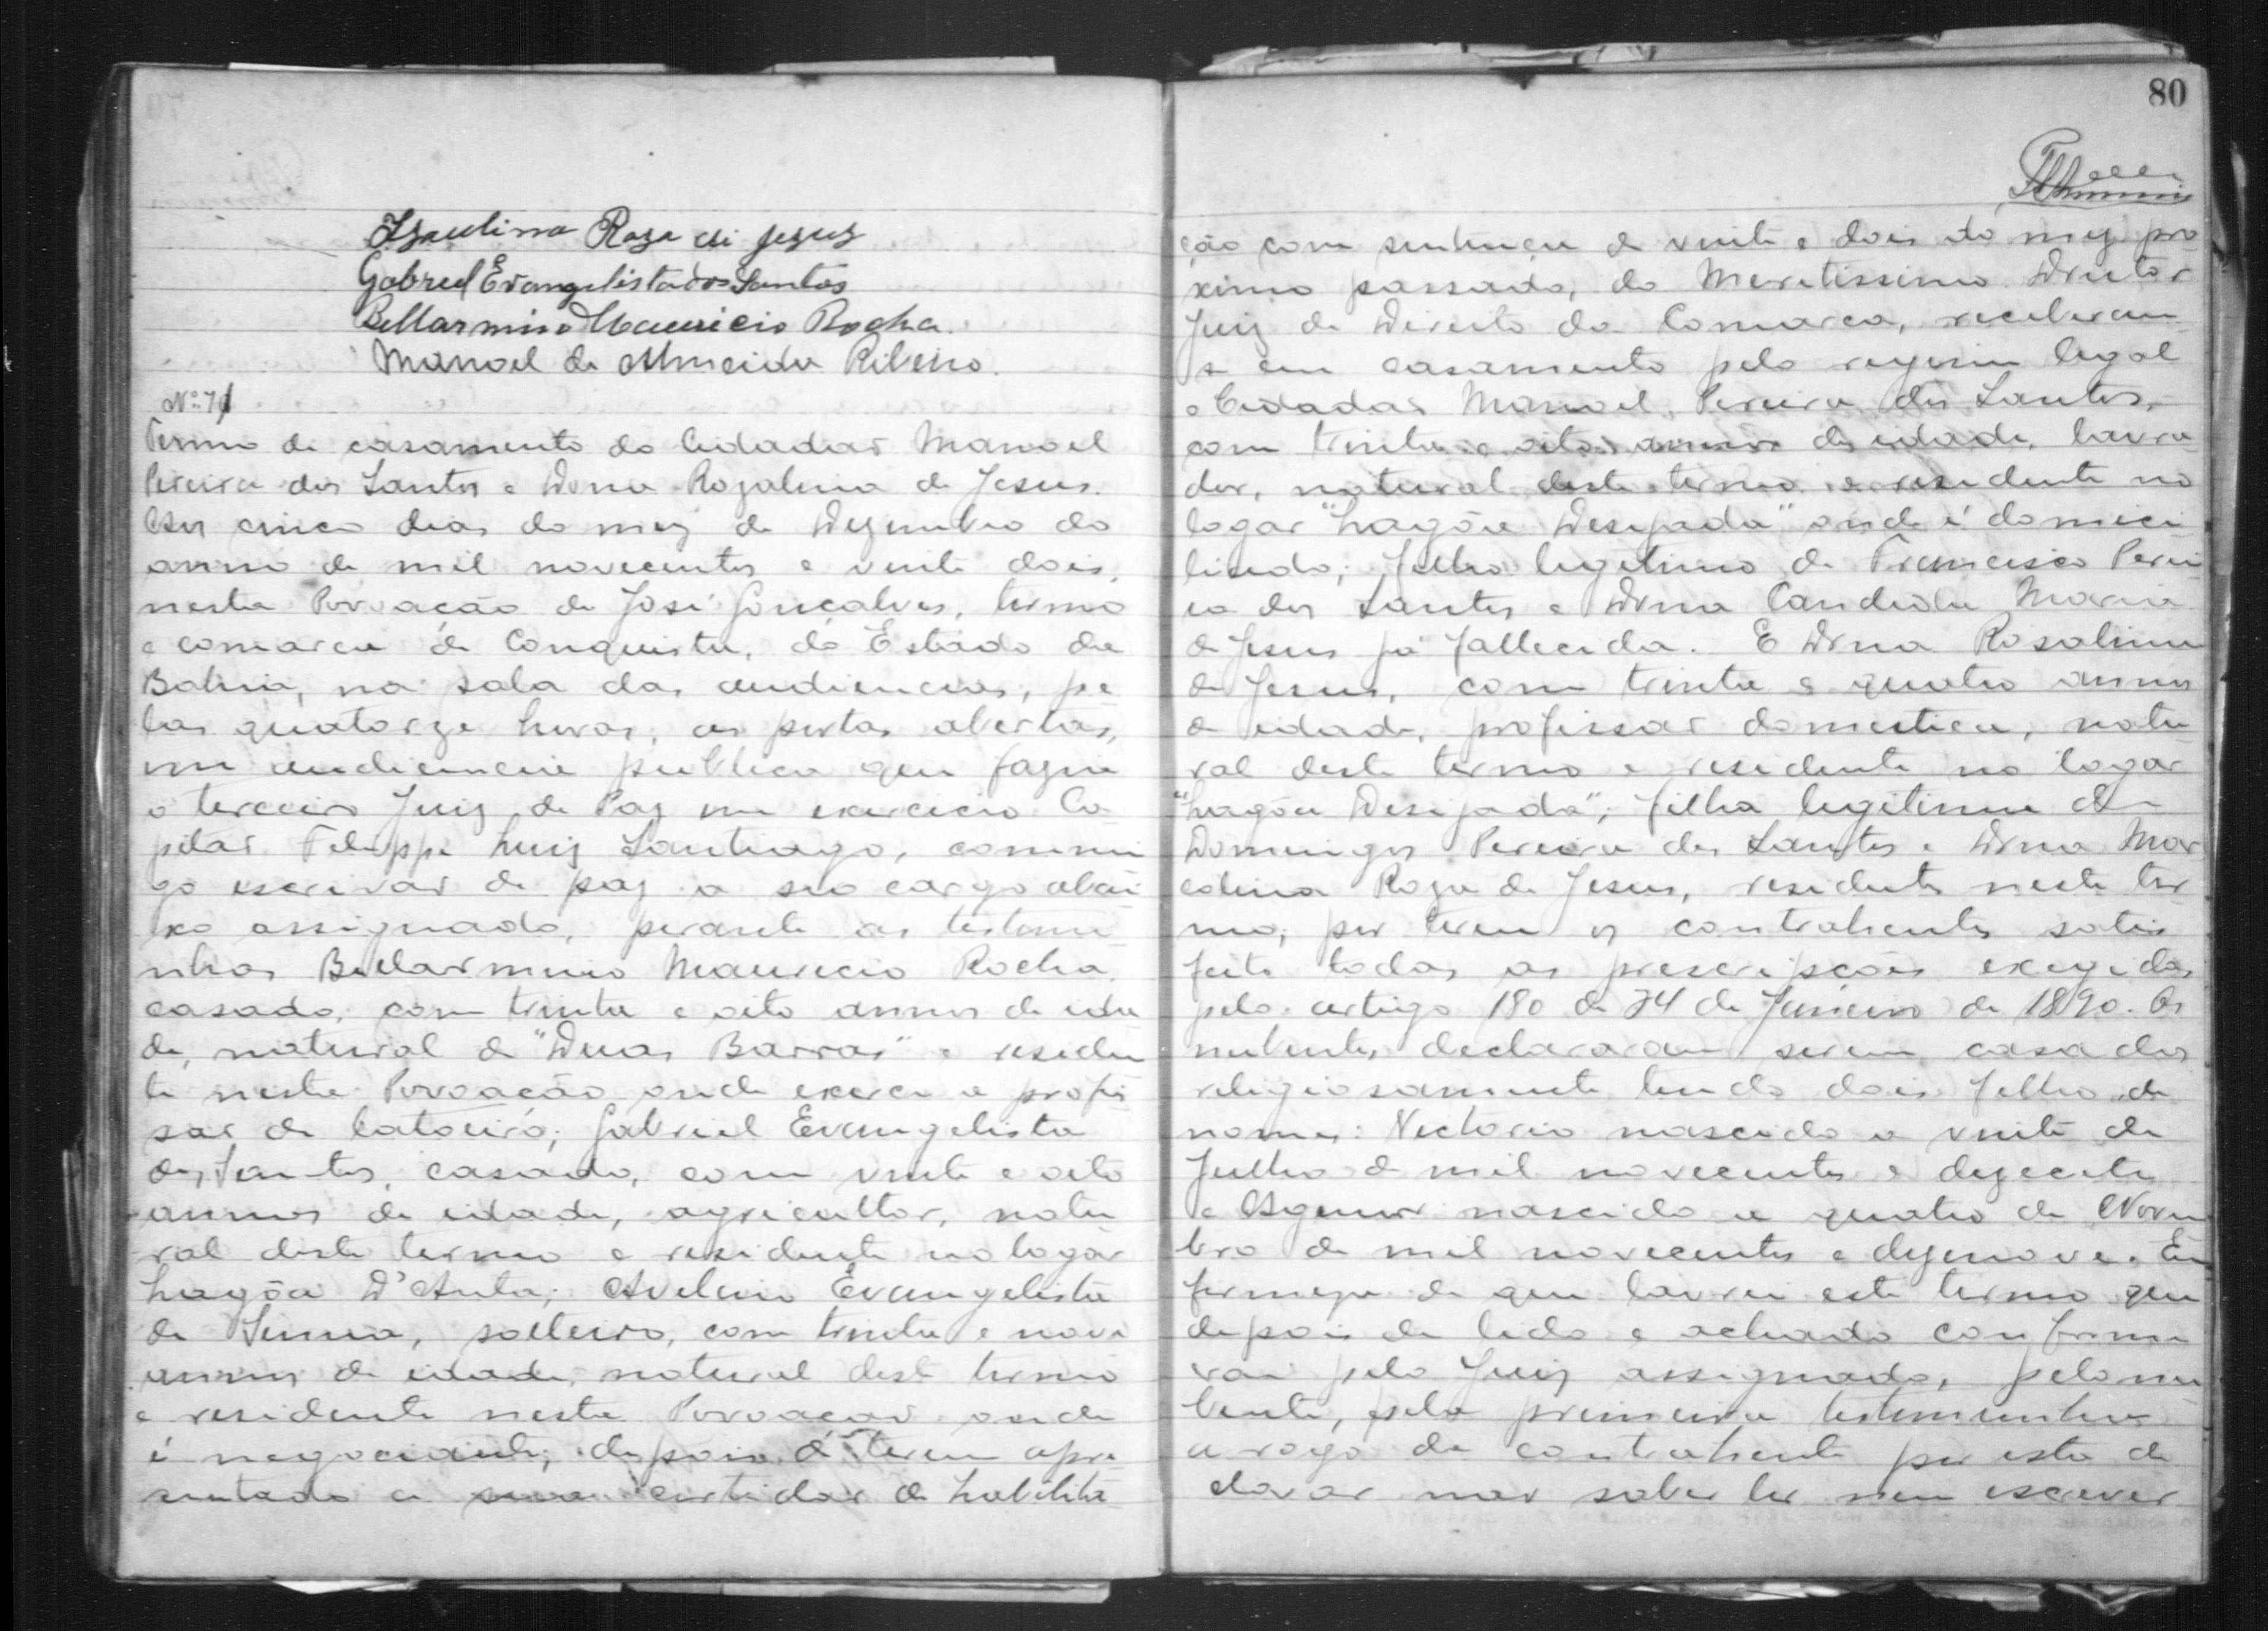 Izaulina Roza di Jezuz
Gabriel Evangelista dos Santos
Bellarmino Mauricio Rocha.
Manoel de Almeida Ribeiro.
Nº 71
Termo de casamento do Cidadão Manoel
Pereira dos Santos e Dona Rozalina de Jesus.
Aos cinco dias do mez de Dezembro do
anno de mil novecentos e vinte dois,
nesta Povoação de José Gonçalves, termo
e comarca de Conquista, do Estado da
Bahia, na sala das audiencias, pe
las quatorze horas, as portas abertas,
em audiencia publica que fazia
o terceiro Juiz de Paz em exercicio Ca
pitão Felippe Luiz Santiago, commi
go escrivão de paz a seo cargo abai
xo assignado, perante as testemu
nhas Bellarmino Mauricio Rocha,
casado, com trinta e oito annos de ida
de, natural de "Duas Barras" e residen
te nesta Povoação onde exerce a profis
são de latoeiro; Gabriel Evangelista
dos Santos, casado, com vinte e oito
annos de idade, agricultor, natu
ral deste termo e residente no logar
Lagôa D'Anta; Avelino Evangelista
de Senna, solteiro, com trinta e nove
annos de idade, natural deste termo
e residente nesta Povoação onde
é negociante; depois de terem apre
sentado a sua certidão de habilita
80
ção com sentença de vinte e dois do mez pro
ximo passado, do Meretissimo Doutor
Juiz de Direito da Comarca, receberam
se em casamento pelo regimen legal
o Cidadão Manoel Pereira dos Santos,
com trinta e oito annos de idade, lavra
dor, natural deste termo e residente no
logar "Lagôa Desejada" onde é domici
liado; filho legitimo de Francisco Perei
ra dos Santos e Dona Candida Maria
de Jesus já fallecida. E Dona Rosalina
de Jesus, com trinta e quatro annos
de idade, profissão domestica, natu
ral deste termo e residente no logar
"Lagôa Desejada"; filha legitima de
Domingos Pereira dos Santos e Dona Mar
colina Roza de Jesus, residentes neste ter
mo; por terem os contrahentes satis
feito todas as prescripções exegidas
pelo artigo 180 de 24 de Janeiro de 1890. Os
nubentes declararam serem casados
religiosamente tendo dois filho de
nomes: Nectorio nascido a vinte de
Julho de mil novecentos e dezecete
e Agenor nascido a quatro de Novem
bro de mil novecentos e dezenove. Em
firmeza de que lavrei este termo que
depois de lido e achado conforme
vai pelo Juiz assignado, pelo nu
bente, pela primeira testemunha
a rogo da contrahente por esta de
clarar não saber ler nem escrever